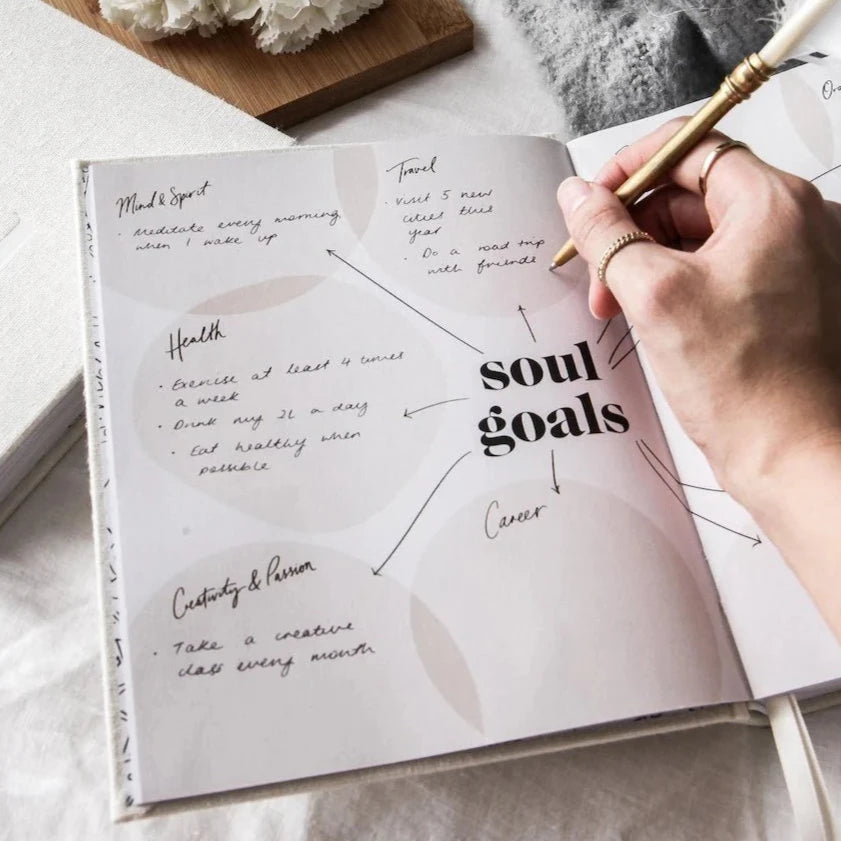 Mind & Spirit
• Meditate every morning
when I wake up
Travel
• Visit 5 new
cities this
year
• Do a road trip
with friends
Health
• Exercise at least 4 times
a week
• Drink my 2L a day
• Eat healthy when
possible
soul
goals
Career
Creativity & Passion
• Take a creative
class every month